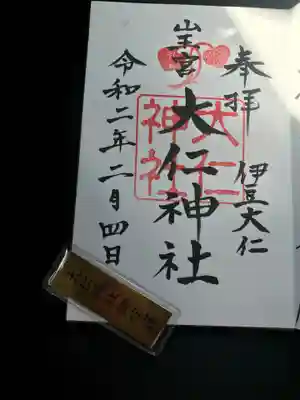 奉拝
伊豆大仁
山王宮
大仁神社
大仁神社
令和二年二月四日